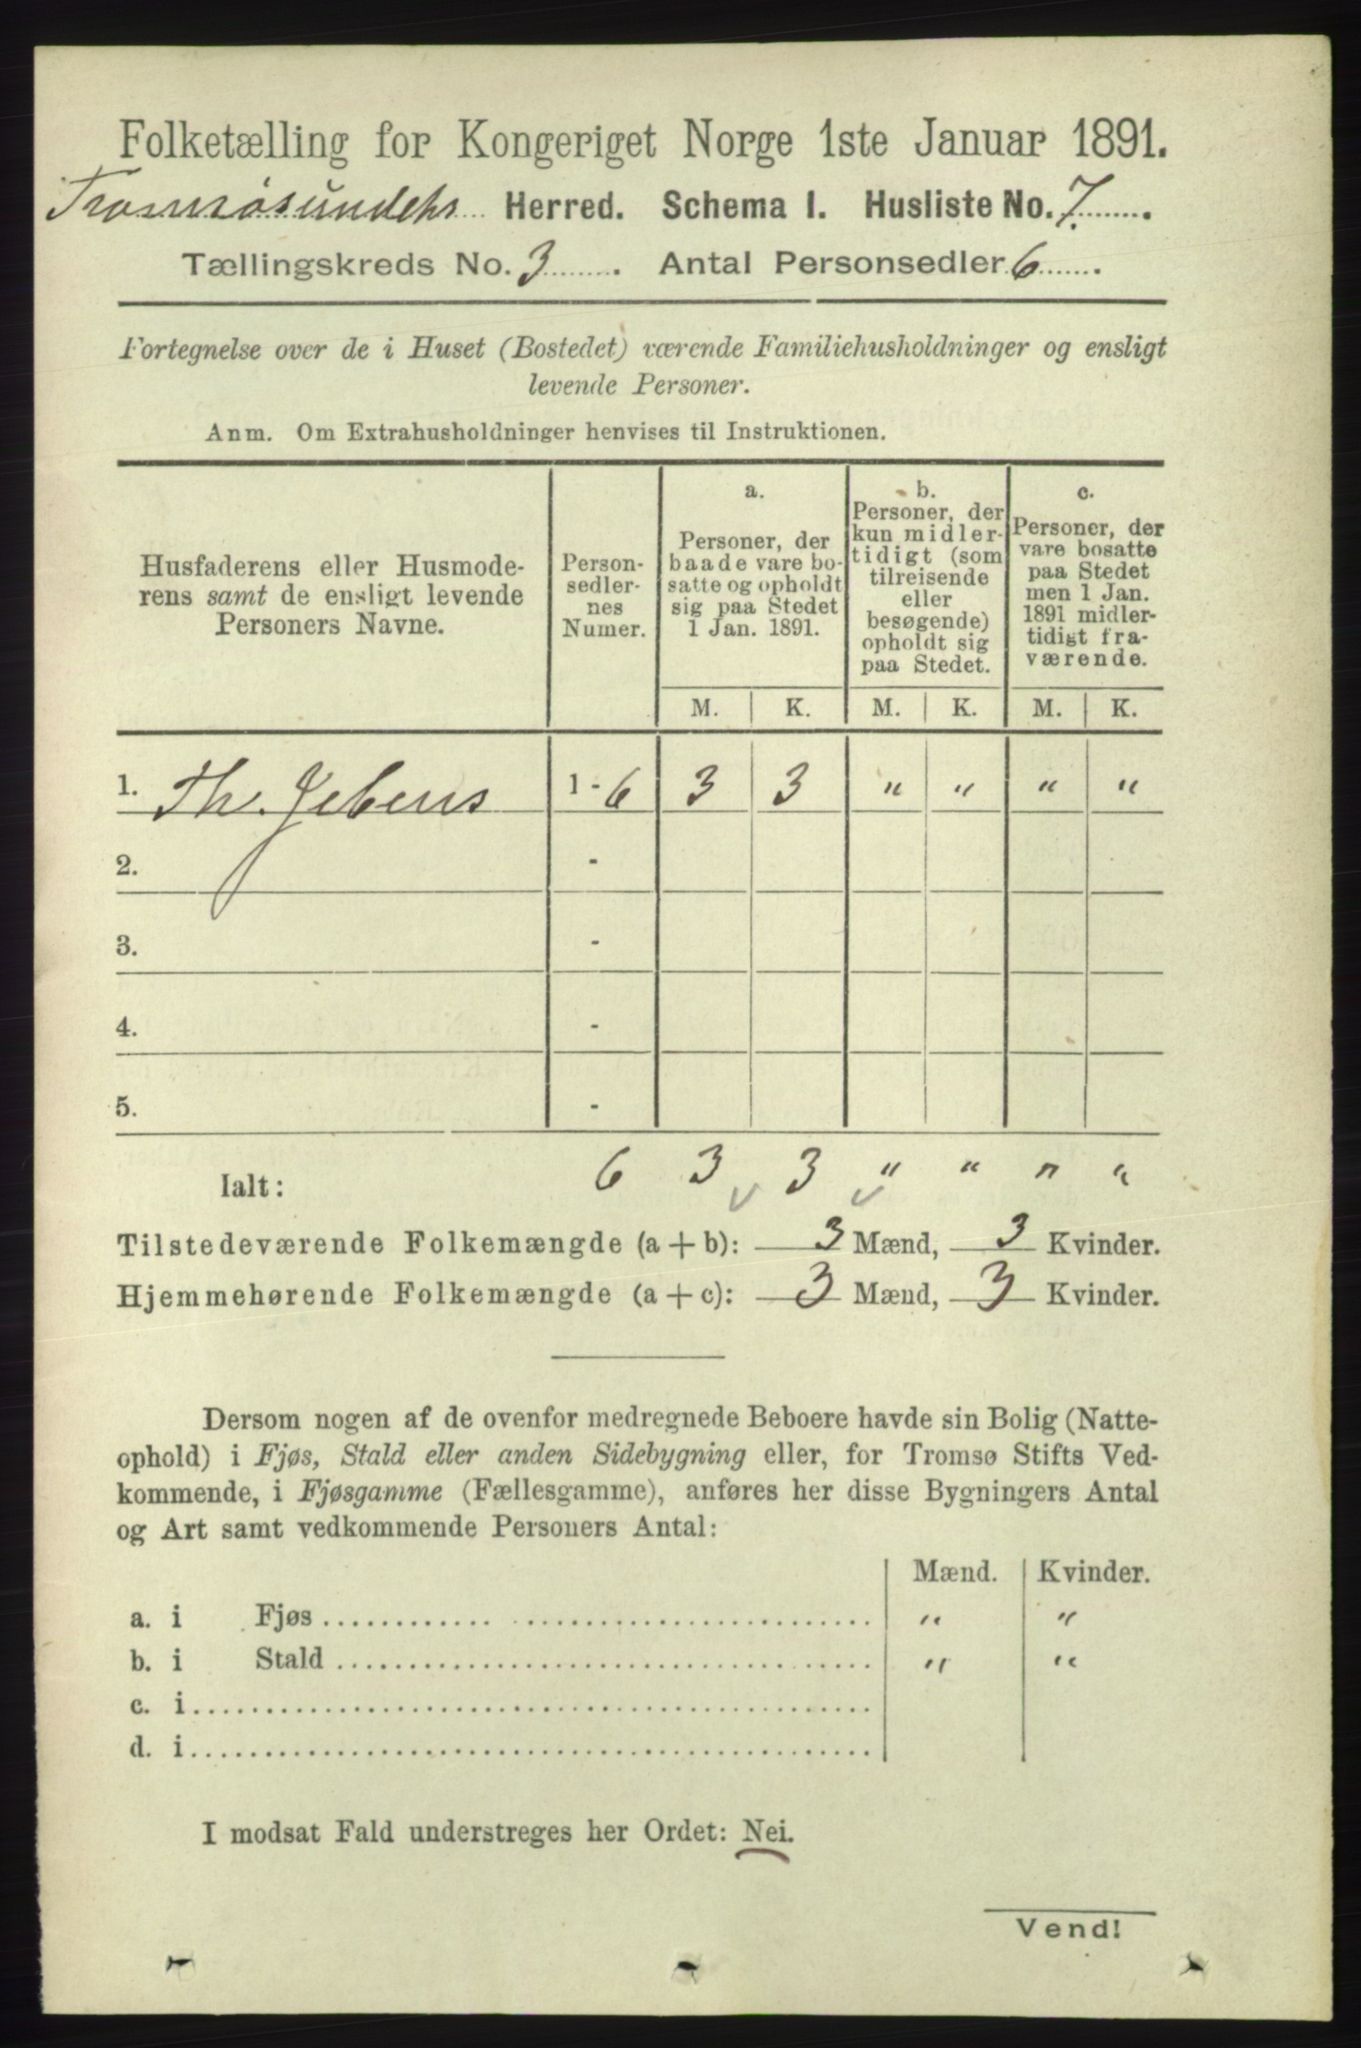 Folketælling for Kongeriget Norge 1ste Januar 1891.
Tromsøsundets Herred. Schema I. Husliste No. 7.
Tællingskreds No. 3. Antal Personsedler 6.
Fortegnelse over de i Huset (Bostedet) værende Familiehusholdninger og ensligt
levende Personer.
Anm. Om Extrahusholdninger henvises til Instruktionen.
Husfaderens eller Husmode-
rens samt de ensligt levende
Personers Navne.
Person-
sedler-
nes
Numer.
a.
Personer, der
baade vare bo-
satte og opholdt
sig paa Stedet
1 Jan. 1891.
b.
Personer, der
kun midler-
tidigt (som
tilreisende
eller
besøgende)
opholdt sig
paa Stedet.
c.
Personer, der
vare bosatte
paa Stedet
men 1 Jan.
1891 midler-
tidigt fra-
værende.
M. K. M. K. M. K.
1. Th. Jebens 1 - 6 3 3 " " " "
2. -
3. -
4. -
5. -
Ialt: 6 3 3 " " " "
Tilstedeværende Folkemængde (a + b): 3 Mænd, 3 Kvinder.
Hjemmehørende Folkemængde (a + c): 3 Mænd, 3 Kvinder.
Dersom nogen af de ovenfor medregnede Beboere havde sin Bolig (Natte-
ophold) i Fjøs, Stald eller anden Sidebygning eller, for Tromsø Stifts Ved-
kommende, i Fjøsgamme (Fællesgamme), anføres her disse Bygningers Antal
og Art samt vedkommende Personers Antal:
Mænd. Kvinder.
a. i Fjøs " "
b. i Stald " "
c. i
d. i
I modsat Fald understreges her Ordet: Nei.
Vend!